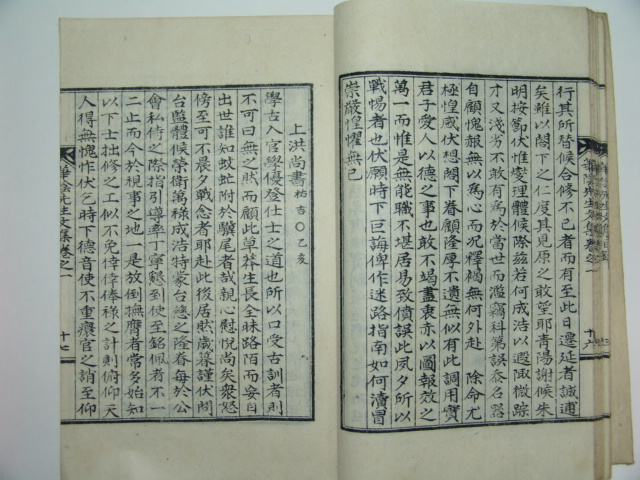 行其所替候合修不已者而有至此日遷延者誠逋
矣雖以閤下之仁度其見原之敢望耶靑陽謝候朱
明按節伏惟燮理體候際玆若何成浩以遐陬微踪
才又淺劣不敢有爲於當世而濫竊科第誤忝名器
自顧愧赧無以爲心而况釋褐無何外赴 除命尤
極惶感伏想閤下眷顧隆厚不遺無似有此調用實
君子愛人以德之事也敢不竭盡衷赤以圖報效之
萬一而惟是無能職不堪居易致僨誤此夙夕所以
戰惕者也伏願時下巨誨俾作迷路指南如何瀆冒
崇嚴惶懼無已
華陰先生文集卷之一
十六
上洪尙書祐吉○乙亥
學古入官學優登仕士之道也所以口受古訓者則
不可曰無之然而顧此草莽生長全昧路陌而妄自
出世誰知蚊虻附於驥尾者哉親心慰悅尙矣衆怒
傍至可不晨夕戰念者耶赴此後居然歲葉謹伏問
台監體候榮衛萬祿成浩特蒙台慈之隆眷每於公
會私侍之際指引導率丁寧懇到使至銘佩者不一
二止而今於視事之地一是放倒撫膺者常多始知
以下士拙修之工似不免倖倖俸祿之計則俯仰天
人得無愧怍伏乞時下德音使不重癏官之誚至仰
華陰先生文集卷之一
十七